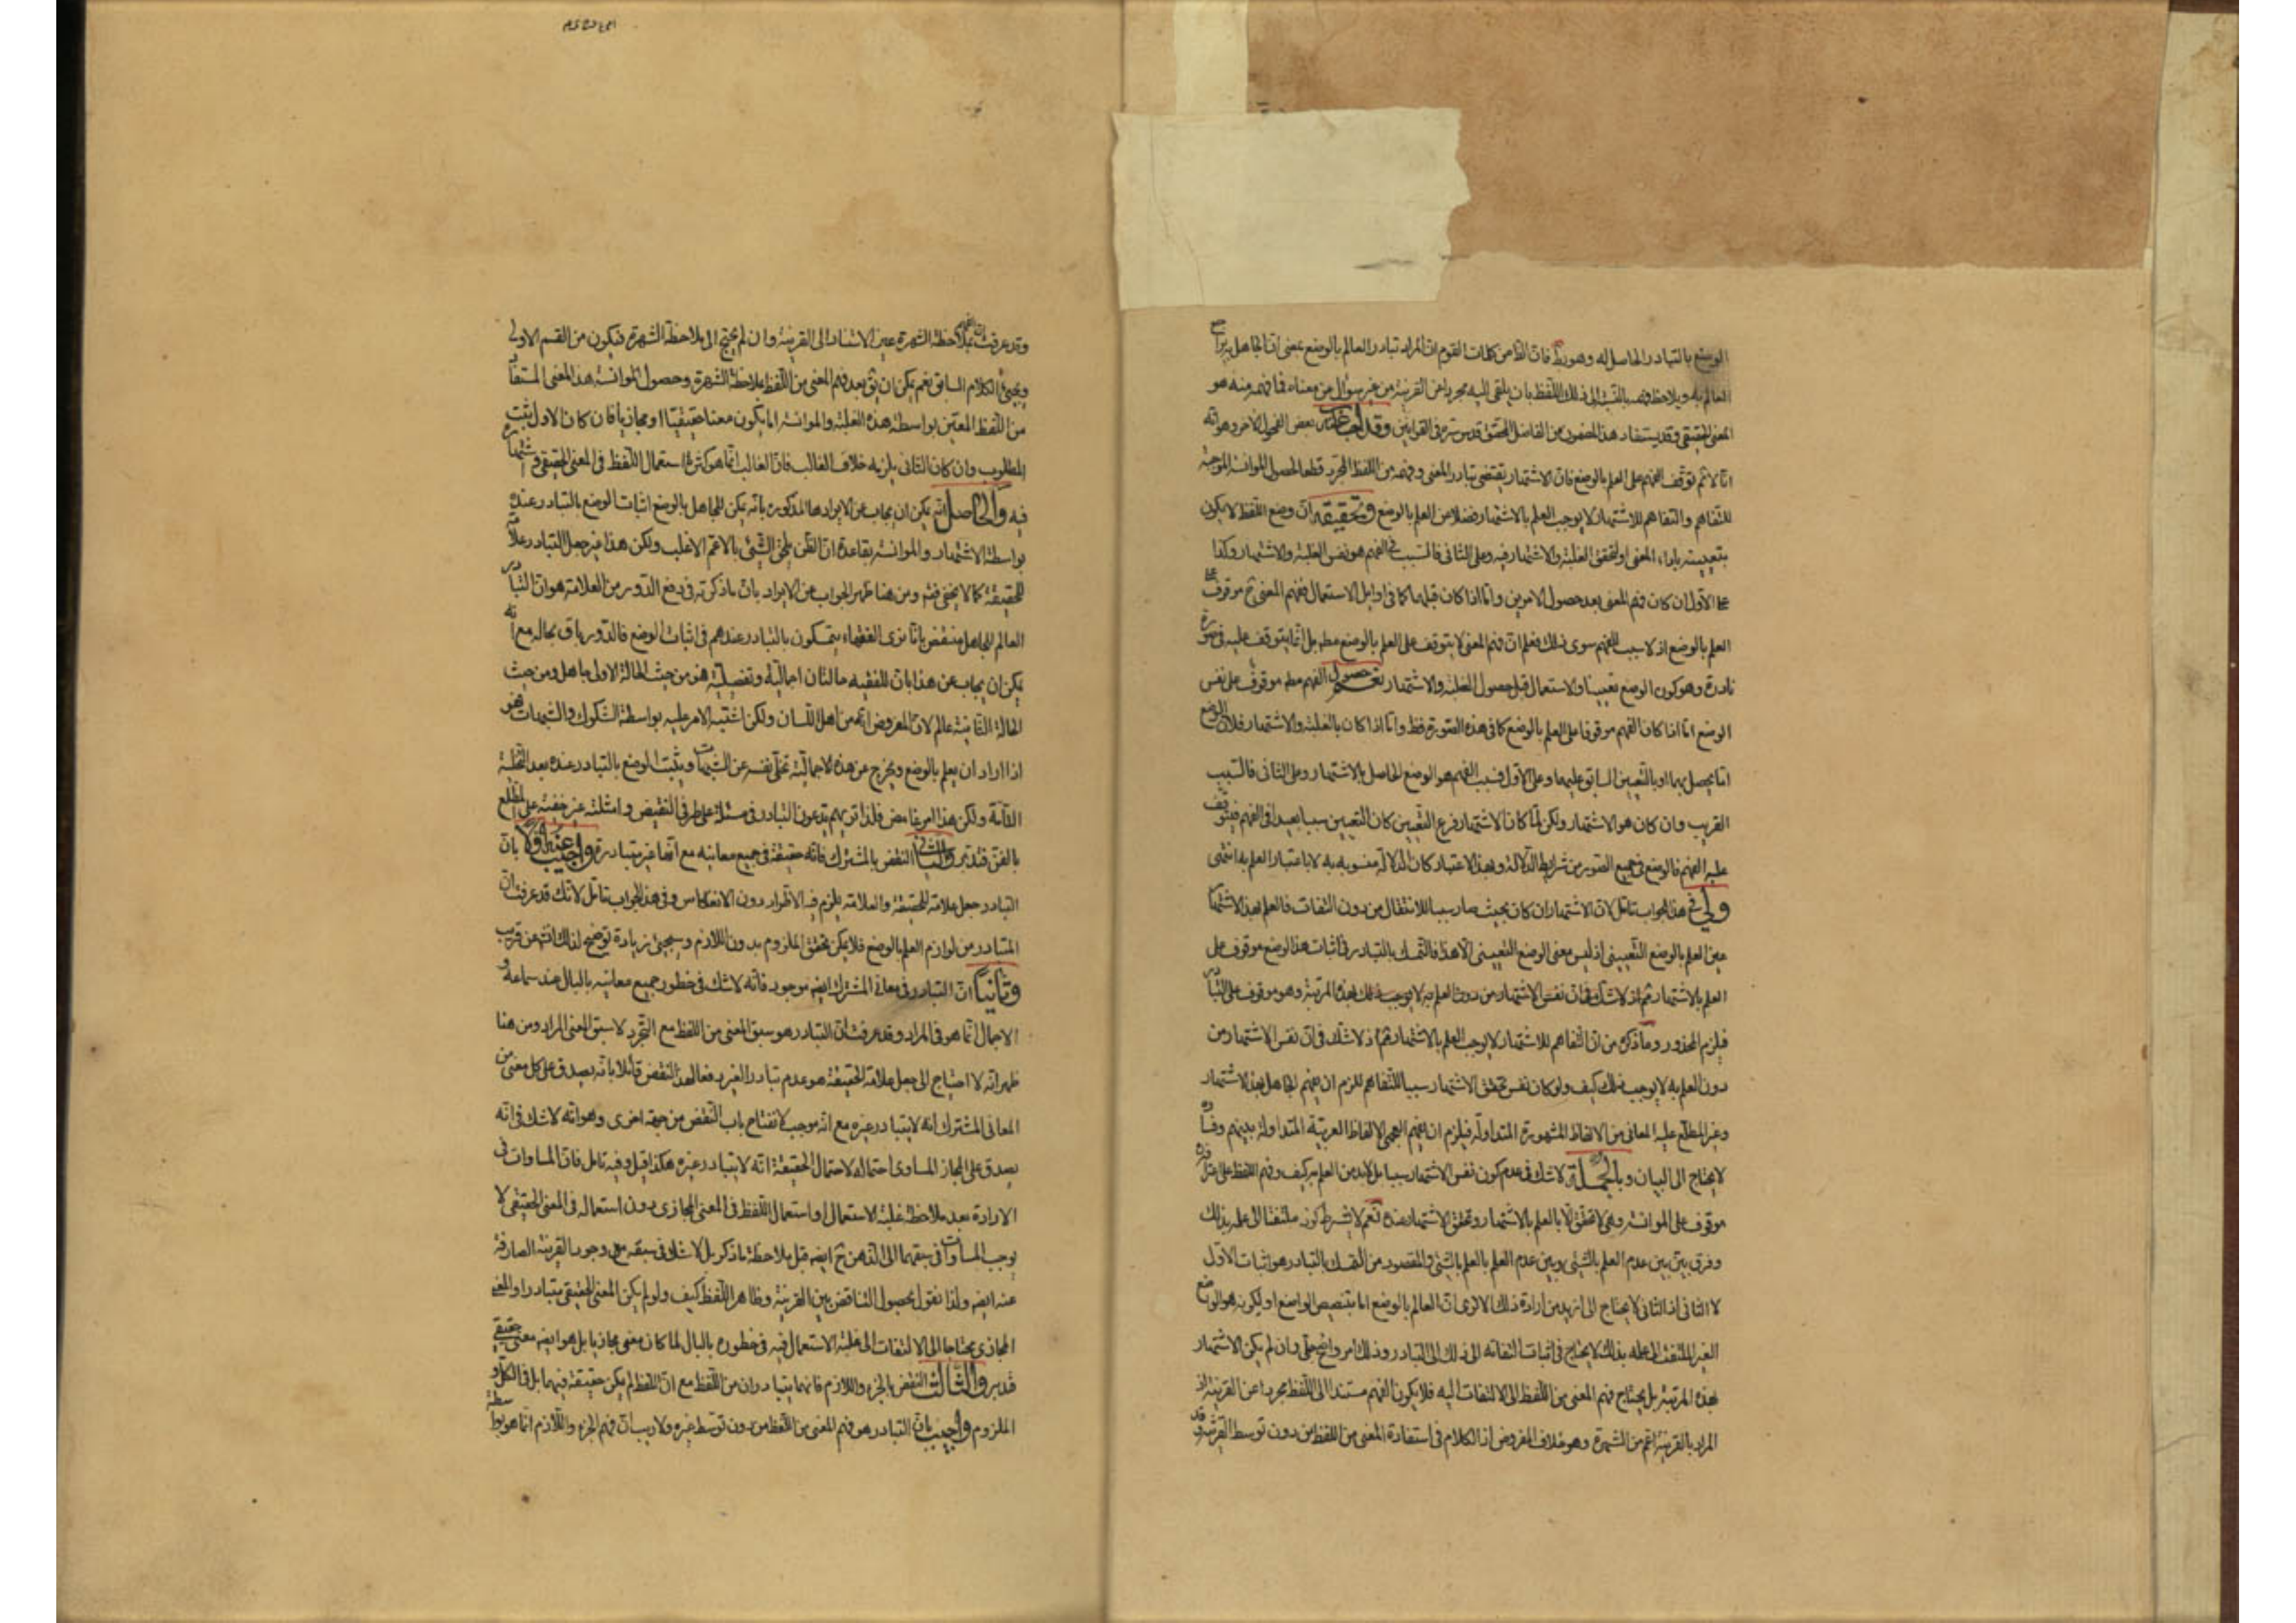 الوضع بالتبادر الحاصل له وهو دور فان الظ من كلمات القوم ان المراد تبادر العالم بالوضع بمعنى ان الجاهل يراجع
العالم به ويلاحظ فهمه بالنسبة الى ذلك اللفظ بان يلقى اليه مجردا عن القرينة من غير سؤال عن معناه فما فهم منه هو
المعنى الحقيقى وقد يستفاد هذا المضمون من الفاضل المحقق قدس سره فى القوانين وقد اجاب عنه بعض الفحول الاخر وهو انه
انا لا نم توقف الفهم على العلم بالوضع فان الاشتهار يقتضى تبادر المعنى وفهمه من اللفظ المجرد قطعا لحصول الموانسة الموجبة
للتفاهم والتفاهم للاشتهار لا يوجب العلم بالاشتهار فضلا من العلم بالوضع وتحقيقه ان وضع اللفظ لا يكون
بتعيينه بازاء المعنى او لتحقق الغلبة والاشتهار فيه وعلى الثانى فالسبب فى الفهم هو نفس الغلبة والاشتهار وكذا
على الاول ان كان فهم المعنى بعد حصول الامرين واما اذا كان قبلهما كما فى اوايل الاستعمال ففهم المعنى ح موقوف على
العلم بالوضع اذ لا سبب للفهم سوى ذلك فعلم ان فهم المعنى لا يتوقف على العلم بالوضع مطم بل انما يتوقف عليه فى صورة
نادرة وهو كون الوضع تعيينيا والاستعمال قبل حصول الغلبة والاشتهار نعم حصول الفهم مطم موقوف على نفس
الوضع اما اذا كان الفهم موقوفا على العلم بالوضع كما فى هذه الصورة فظ واما اذا كان بالغلبة والاشتهار فلان الوضع
اما يحصل بهما او بالتعيين السابق عليهما وعلى الاول فسبب الفهم هو الوضع الحاصل بالاشتهار وعلى الثانى فالسبب
القريب وان كان هو الاشتهار ولكن لما كان الاشتهار فرع التعيين كان التعيين سببا بعيدا فى الفهم فيتوقف
عليه الفهم فالوضع فى جميع الصور من شرايط الدلالة وبهذا الاعتبار كان الدلالة منسوبة به لا باعتبار العلم به انتهى
ولى فى هذا الجواب تامل لان الاشتهار ان كان بحيث صار سببا للانتقال من دون التفات فالعلم بهذا الاشتهار
عين العلم بالوضع التعيينى اذ ليس معنى الوضع التعيينى الا هذا فالتمسك بالتبادر فى اثبات هذا الوضع موقوف على
العلم بالاشتهار نعم اذ لا شك فى ان نفس الاشتهار من دون العلم به لا يوجب ذلك بهذه المرتبة وهو موقوف على التبادر
فيلزم المحذور وما ذكره من ان التفاهم للاشتهار لا يوجب العلم بالاشتهار نعم اذ لا شك فى ان نفس الاشتهار من
دون العلم به لا يوجب ذلك كيف ولو كان نفس تحقق الاشتهار سببا للتفاهم للزم ان يفهم الجاهل بهذا الاشتهار
وغير المطلع عليه المعانى من الالفاظ المشهورة المتداولة فيلزم ان يفهم العجمى الالفاظ العربية المتداولة بينهم وفساده
لا يحتاج الى البيان وبالجملة لا شك فى عدم كون نفس الاشتهار سببا بل لا بد من العلم به كيف وفهم اللفظ على
موقوف على الموانسة وهى لا تحقق الا بالعلم بالاشتهار وتحقق الاشتهار عنده نعم لا يشترط كونه ملتفتا الى علمه بذلك
وفرق بين بين عدم العلم بالشئى وبين عدم العلم بالعلم بالشئى والمقصود من التمسك بالتبادر هو اثبات الاول
لا الثانى اذ الثانى لا يحتاج الى ازيد من ارادة ذلك الا ترى ان العالم بالوضع اما بتنصيص الواضع او لكونه هو الواضع
الغير الملتفت الى علمه بذلك لا يحتاج فى اثبات التفاته الى ذلك الى التبادر وذلك امر واضح جلى وان لم يكن الاشتهار
بهذه المرتبة بل يحتاج فهم المعنى من اللفظ الى الالتفات اليه فلا يكون الفهم مستندا الى اللفظ مجردا عن القرينة اذ
المراد بالقرينة اعم من الشهرة وهو خلاف المفروض اذ الكلام فى استفادة المعنى من اللفظ من دون توسط القرينة وقد
وقد عرفت ان الفهم بملاحظة الشهرة عين الاستناد الى القرينة وان لم يحتج الى ملاحظة الشهرة فيكون من القسم الاول
ويجىء الكلام السابق نعم يمكن ان يق بعد فهم المعنى من اللفظ بملاحظة الشهرة وحصول الموانسة هذا المعنى المستفاد
من اللفظ المعين بواسطة هذه الغلبة والموانسة اما يكون معنا حقيقيا او مجازيا فان كان الاول ثبت
المطلوب وان كان الثانى يلزمه خلاف الغالب فان الغالب انما هو كثرة استعمال اللفظ فى المعنى الحقيقى وشهرته
فيه والحاصل انه يمكن ان يجاب عن الايراد المذكور بانه يمكن للجاهل بالوضع اثبات الوضع بالتبادر عنده
بواسطة الاشتهار والموانسة بقاعدة ان الظن يلحق الشئى بالاعم الاغلب ولكن هذا غير جعل التبادر علامة
للحقيقة كما لا يخفى فتم ومن هنا ظهر الجواب عن الايراد بان ما ذكرته فى دفع الدور من العلامة هو ان التبادر
العالم للجاهل منتقض بانا نرى الفقهاء يتمسكون بالتبادر عندهم فى اثبات الوضع فالدور باق بحاله مع انه
يمكن ان يجاب عن هذا بان للفقيه حالتان اجمالية وتفصيلية فهو من حيث الحالة الاولى جاهل ومن حيث
الحالة الثانية عالم لان المفروض انه من اهل اللسان ولكن اشتبه الامر عليه بواسطة الشكوك والشبهات فهو
اذا اراد ان يعلم بالوضع ويخرج عن هذه الاجمالية تخلى نفسه عن الشبهات ويثبت الوضع بالتبادر عنده بعد التخلية
التامة ولكن هذا امر غامض فلذا تريهم يدعون التبادر فى مسئلة على طرفى النقيض وامثلته غير خفية على المطلع
بالفن فتدبر والثانى النقض بالمشترك فانه حقيقة فى جميع معانيه مع انها غير متبادرة واجيب عنه اولا بان
التبادر جعل علامة للحقيقة والعلامة يلزم فيه الاطراد دون الانعكاس وفى هذا الجواب تامل لانك قد عرفت ان
التبادر من لوازم العلم بالوضع فلا يمكن تحقق الملزوم بدون اللازم وسيجىء زيادة توضيح لذلك انتهى عن قريب
وثانيا ان التبادر فى معانى المشترك ايضه موجود فانه لا شك فى خطور جميع معانيه بالبال عند سماعه و
الاجمال انما هو فى المراد وقد عرفت ان التبادر هو سبق المعنى من اللفظ مع التجرد لا سبق المعنى المراد ومن هنا
ظهر انه لا احتياج الى جعل علامة الحقيقة هو عدم تبادر الغير دفعا لهذا النقض قائلا بانه يصدق على كل معنى من
المعانى المشترك انه لا يتبادر غيره مع انه موجب لانفتاح باب النقض من جهة اخرى وهو انه لا شك فى انه
يصدق على المجاز المساوى احتماله لاحتمال الحقيقة انه لا يتبادر غيره هكذا قيل وفيه تامل فان المساوات فى
الارادة بعد ملاحظة غلبة الاستعمال او استعمال اللفظ فى المعنى المجازى دون استعماله فى المعنى الحقيقى لا
يوجب المساوات فى سبقهما الى الذهن ح ايضه قبل ملاحظة ما ذكر بل لا شك فى سبقه مع وجود القرينة الصارفة
عنه ايضه ولذا نقول بحصول التناقض بين القرينة وظاهر اللفظ كيف ولو لم يكن المعنى الحقيقى متبادرا والمعنى
المجازى محتاجا الى الالتفات الى غلبة الاستعمال فيه فى خطوره بالبال لما كان معنى مجازيا بل هو ايضه معنى حقيقى
فتدبر والثالث النقض بالجزء واللازم فانهما يتبادران من اللفظ مع ان اللفظ لم يكن حقيقة فيهما بل فى الكل و
الملزوم واجيب بان التبادر هو فهم المعنى من اللفظ من دون توسط غيره ولا ريب ان فهم الجزء واللازم انما هو بواسطة